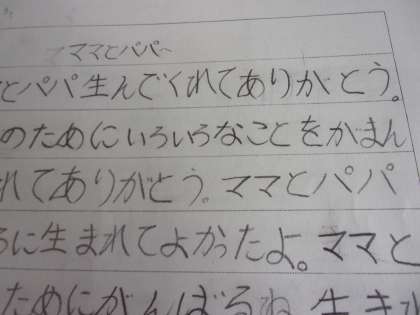 ママとパパへ
とパパ生んでくれてありがとう。
のためにいろいろなことをがまん
れてありがとう。ママとパパ
に生まれてよかったよ。ママと
ためにがんばるね 生き